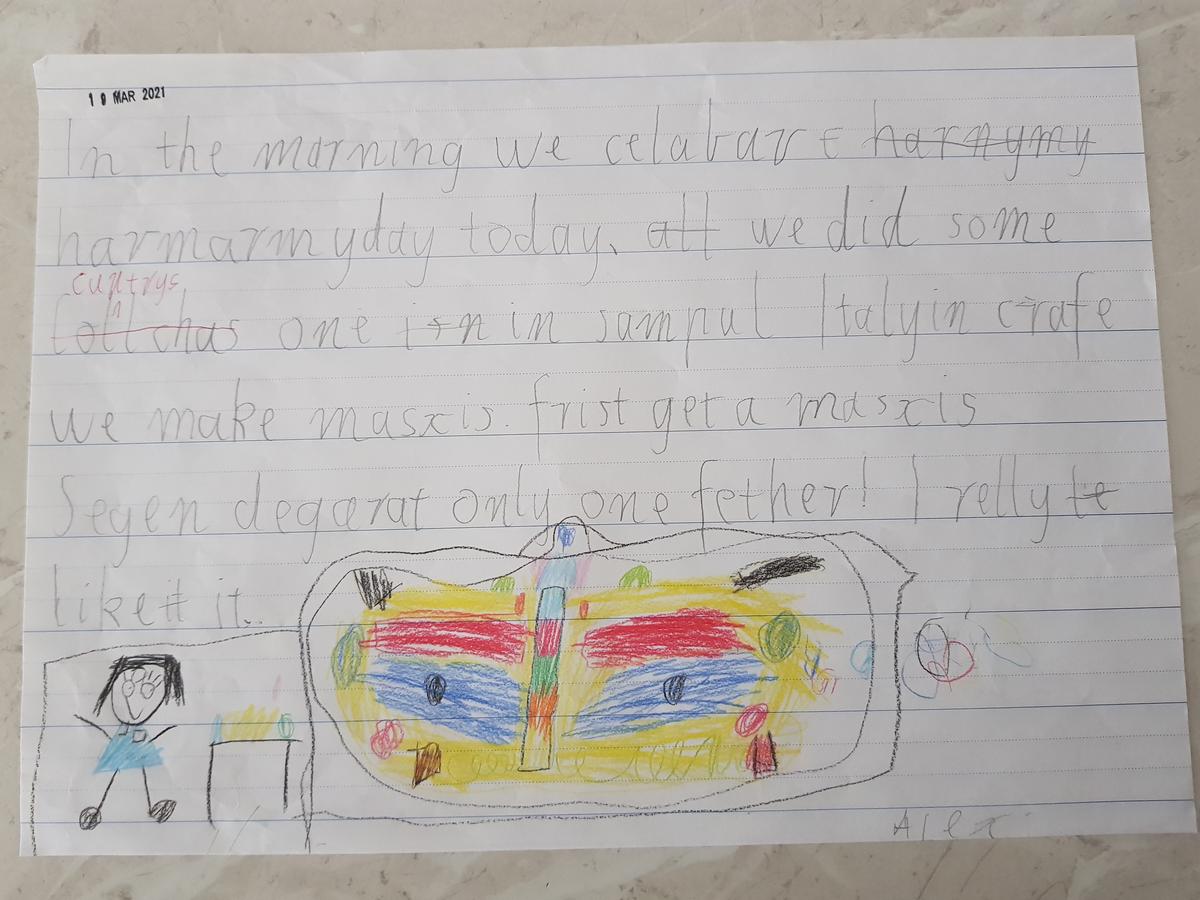 19 MAR 2021
In the marning we celabarte harnymy
harmarmyday today. all we did some
cuntrys
one in in sampul Italyin crafe
we make masxis. frist get a masxis
Segen degarat only one fether! I relly te
like it..
Alex